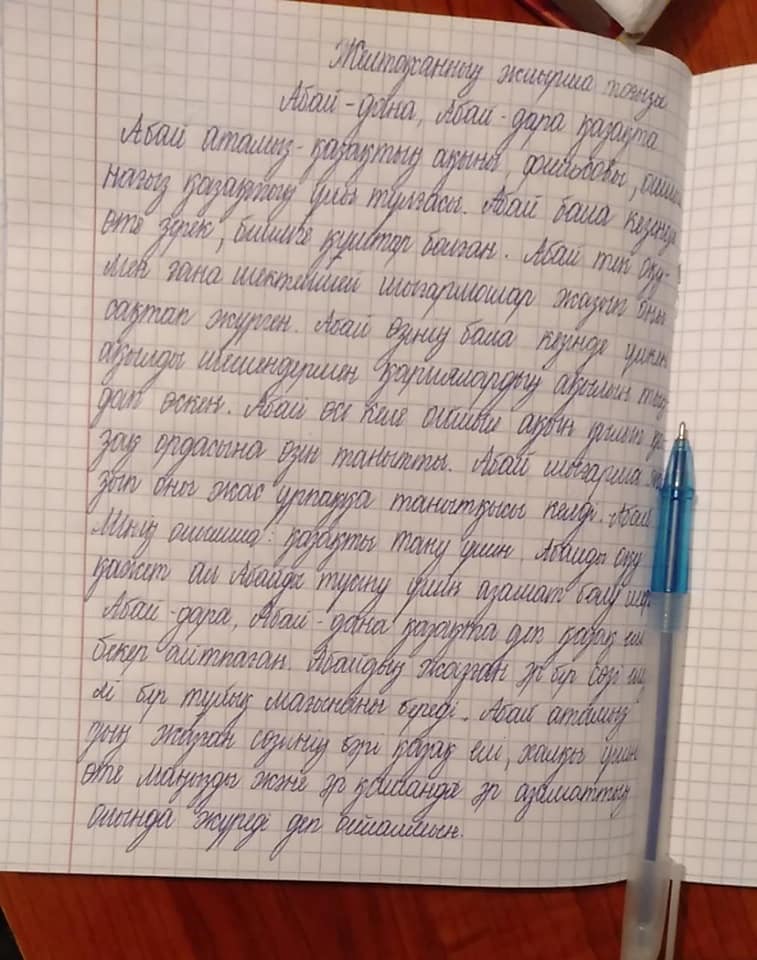 Желтоқсанның жиырма тоғызы
Абай-дана, Абай-дара қазақта
Абай атамыз-қазақтың ақыны, философы,
нағыз қазақтың ұлы тұлғасы. Абай бала кезінде
өте зерек, білімге құштар болған. Абай тек оқу-
мен ғана шектелмей шығармашар жазып оны
сақтап жүрген. Абай өзінің бала кезінде үлкен
ақылды шешендермен қариялардың ақылын тың
дап өскен. Абай өсе келе ойшыл ақын қылып қа-
зақ ордасына өзін танытты. Абай шығарма жа
зып оны жас ұрпаққа танытқысы келді. Абай
Менің ойымша: қазақты тану үшін, Абайды оқу
қажет ал Абайды түсіну үшін азамат болу
Абай-дара, Абай-дана қазақта деп қазақ елі
бекер айтпаған. Абайдың жазған әр бір сөзі
лі бір тұлық мағынаны береді. Абай атамыз
дың жазған сөзінің бәрі қазақ елі, халқы үшін
өте маңызды және әр қашанда әр азаматтың
ойында жүреді деп ойлаймын.